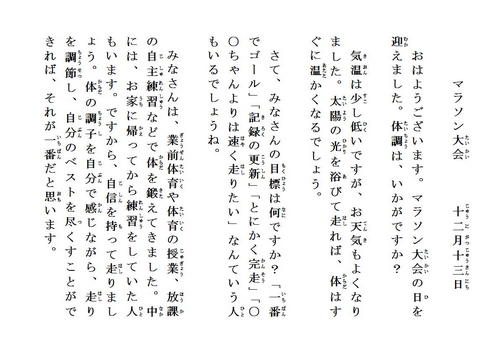 マラソン大会
十二月十三日
おはようございます。マラソン大会の日を
迎えました。体調は、いかがですか？
気温は少し低いですが、お天気もよくなり
ました。太陽の光を浴びて走れば、体はす
ぐに温かくなるでしょう。
さて、みなさんの目標は何ですか？「一番
でゴール」「記録の更新」「とにかく完走」「〇
〇ちゃんよりは速く走りたい」なんていう人
もいるでしょうね。
みなさんは、業前体育や体育の授業、放課
の自主練習などで体を鍛えてきました。中
には、お家に帰ってから練習をしていた人
もいます。ですから、自信を持って走りまし
ょう。体の調子を自分で感じながら、走り
を調節し、自分のベストを尽くすことがで
きれば、それが一番だと思います。